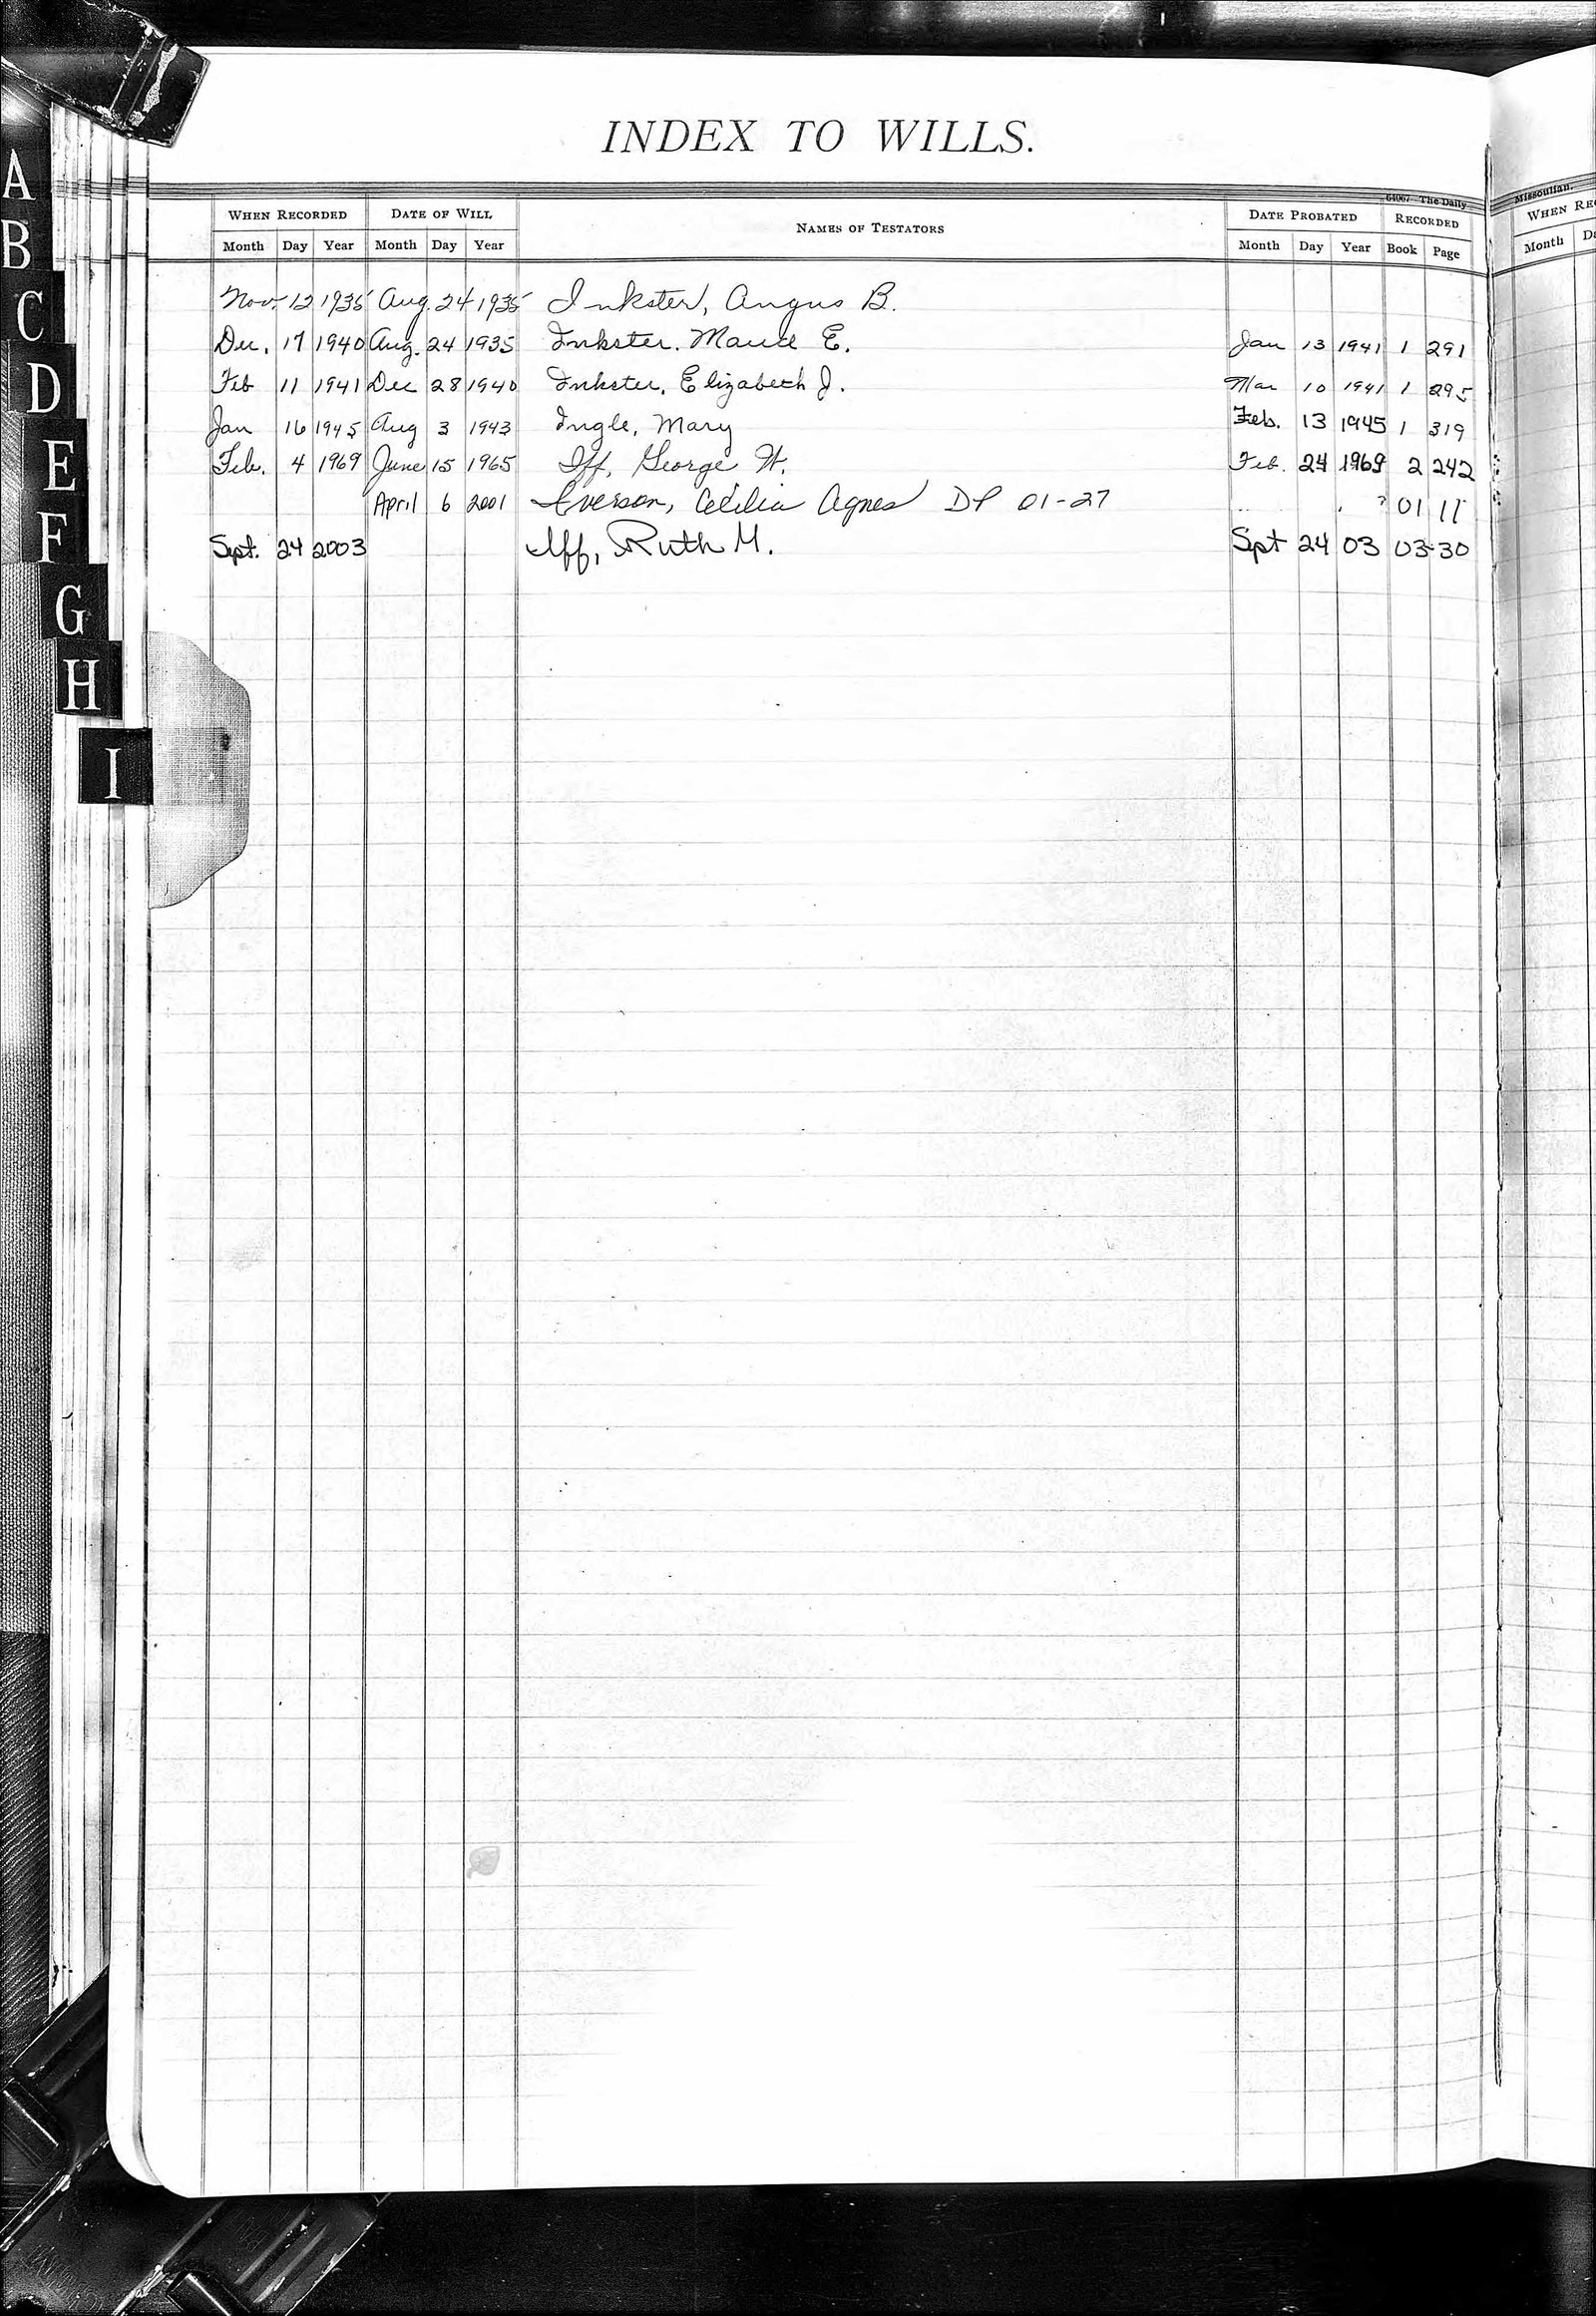 INDEX TO WILLS.
64067—The Daily Missoulian.
WHEN RECORDED DATE OF WILL NAMES OF TESTATORS DATE PROBATED RECORDED
Month Day Year Month Day Year Month Day Year Book Page
Nov. 12 1935 Aug. 24 1935 Inkster, Angus B.
Dec. 17 1940 Aug. 24 1935 Inkster. Maude E. Jan 13 1941 1 291
Feb 11 1941 Dec 28 1940 Inkster, Elizabeth J. Mar 10 1941 1 295
Jan 16 1945 Aug 3 1943 Ingle, Mary Feb. 13 1945 1 319
Feb. 4 1969 June 15 1965 Iff, George W. Feb. 24 1969 2 242
April 6 2001 Iverson, Cecilia Agnes DP 01-27 01 11
Spt. 24 2003 Iff, Ruth M. Spt 24 03 03-30
A
B
C
D
E
F
G
H
I
WHEN RE
Month